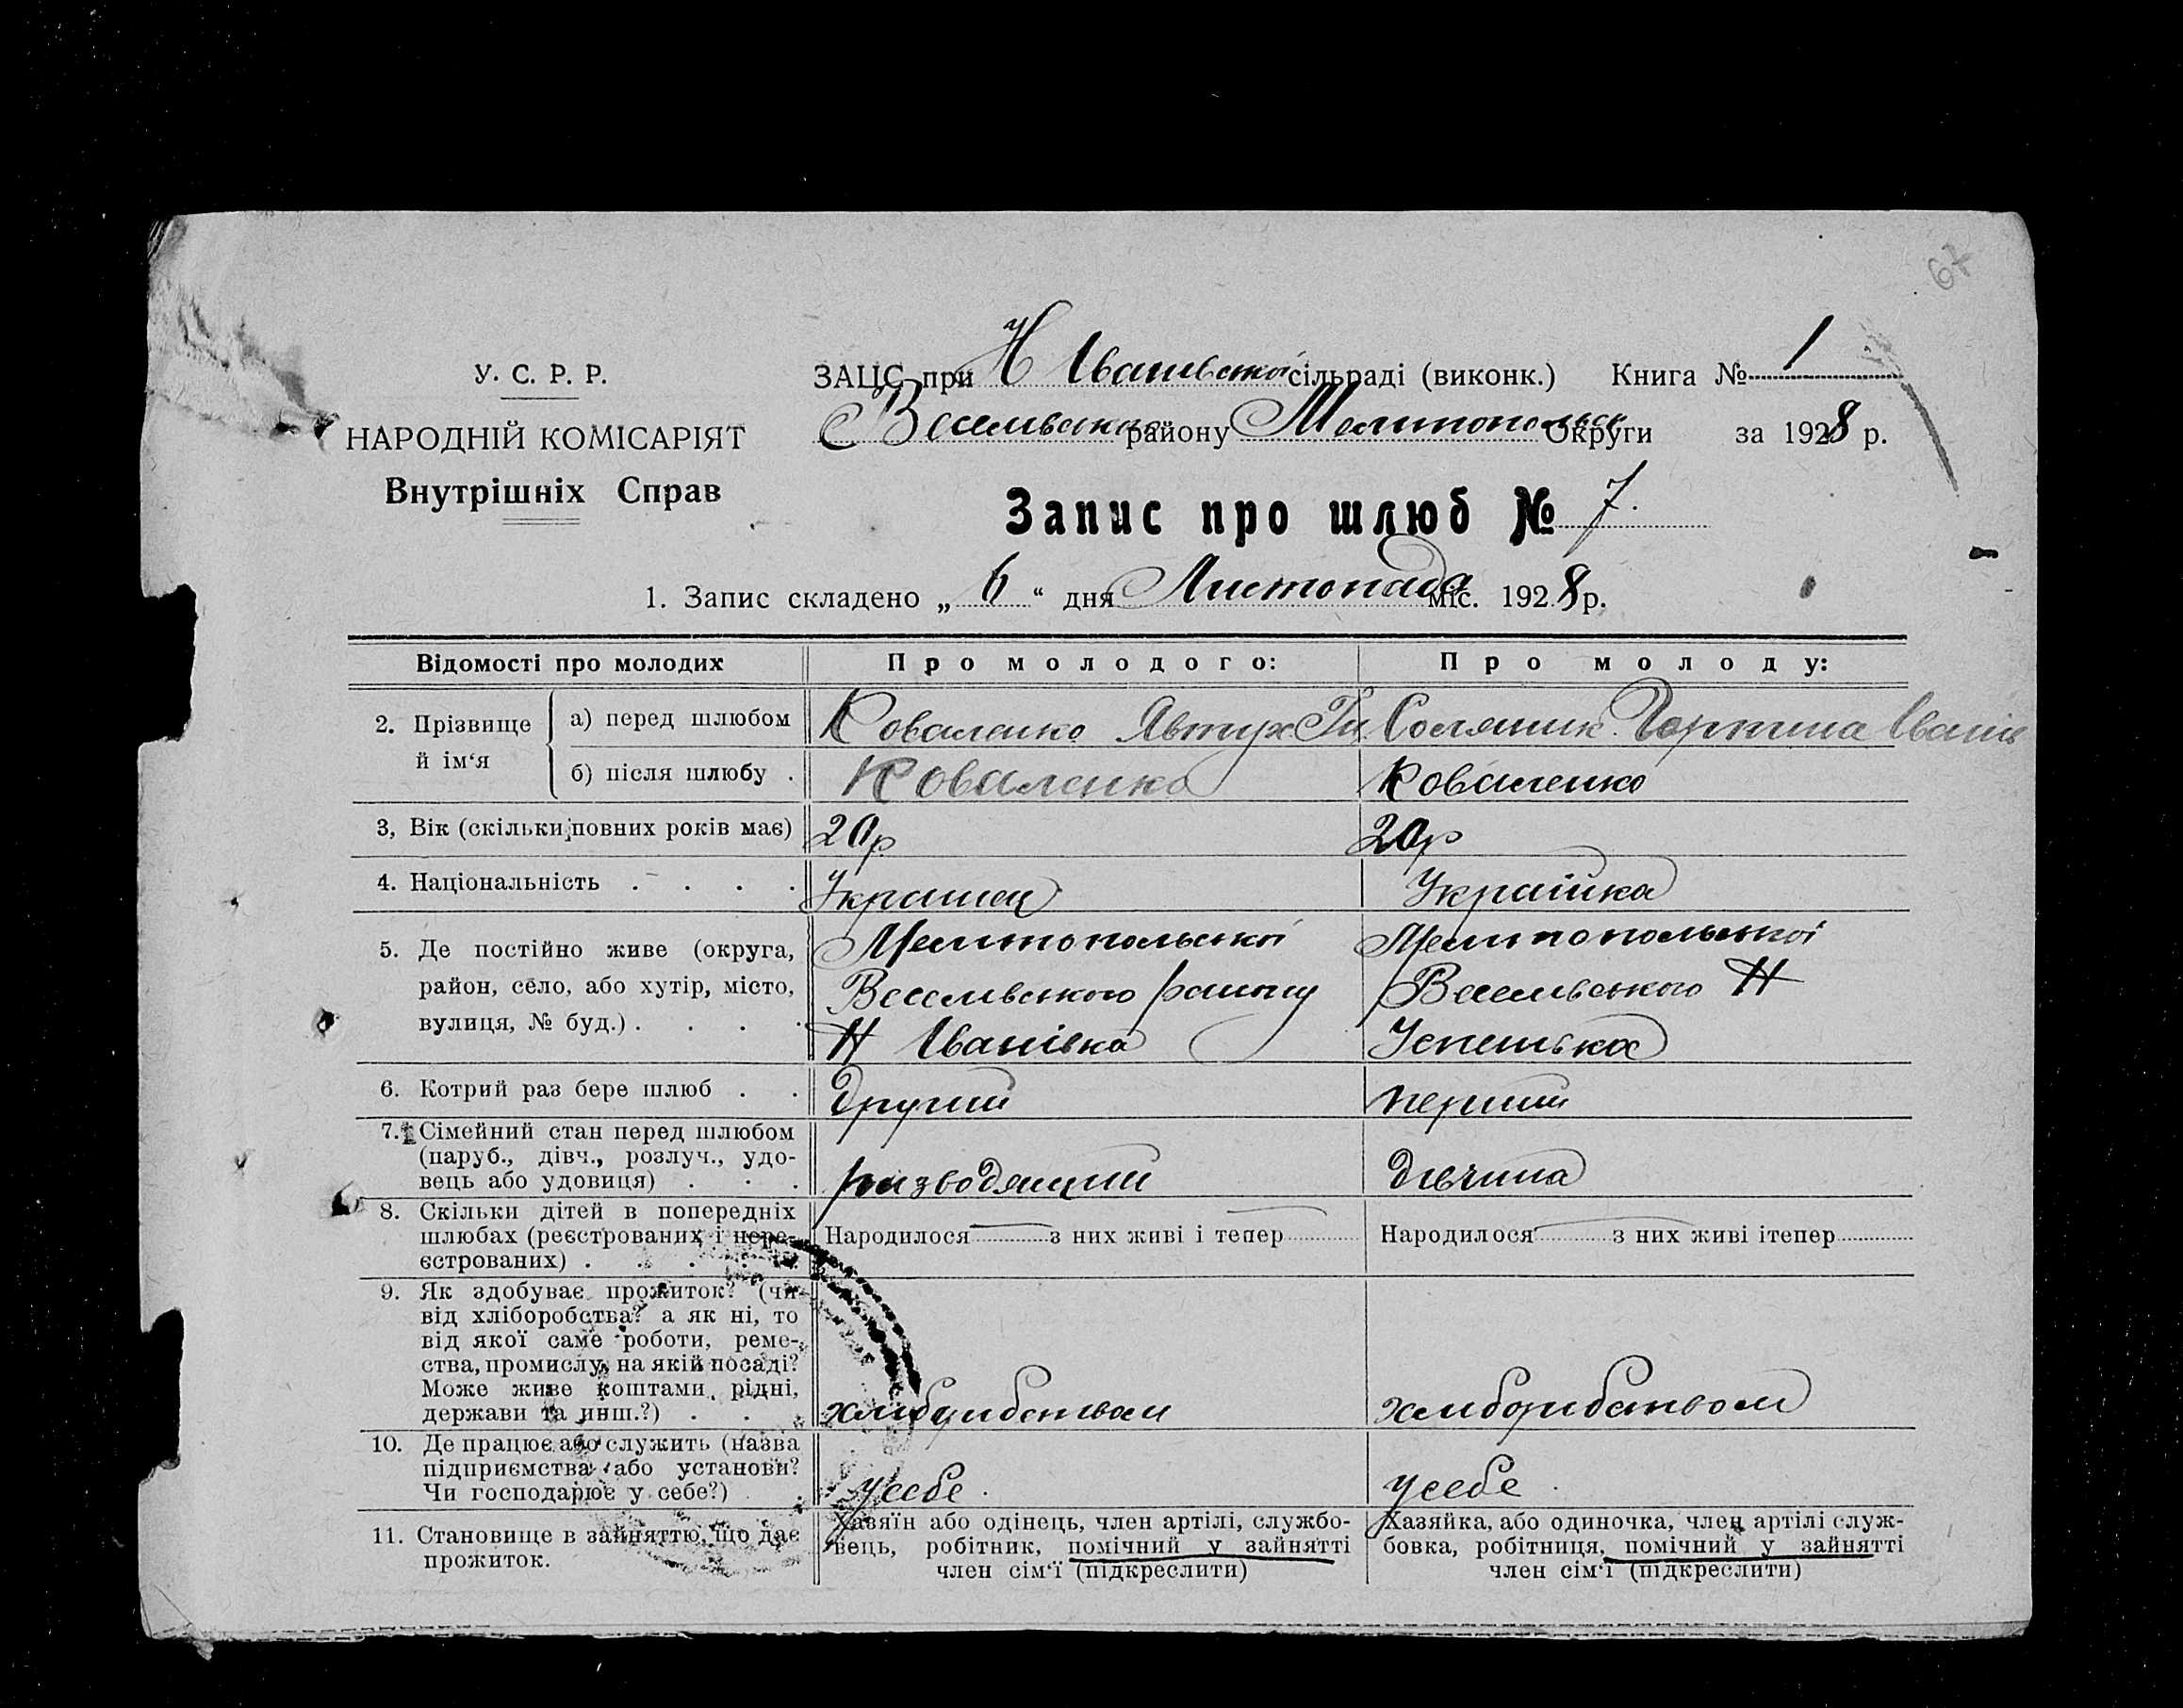 67
У. С. Р. Р.
НАРОДНІЙ КОМІСАРІЯТ
Внутрішніх Справ
ЗАЦС при Н Іванівській сільраді (виконк.) Книга № 1
Веселівського району Мелітопольск Округи за 1928 р.
Запис про шлюб № 7.
1. Запис складено „ 6 “ дня Листопада міс. 1928 р.
Відомості про молодих
Про молодого:
Про молоду:
2. Прізвище й ім‘я
а) перед шлюбом
Коваленко Явтух Ги
Соляник Горпина Іванів
б) після шлюбу .
Коваленко
Коваленко
3, Вік (скільки повних років має)
20р
20р
4. Національність . . . .
Украінец
Украінка
5. Де постійно живе (округа,
район, село, або хутір, місто,
вулиця, № буд.) . . . .
Мелітопольскоі
Веселивського району
Н Іванівка
Мелитопольскоі
Веселивського Н
Успенька
6. Котрий раз бере шлюб . .
другий
перший
7. Сімейний стан перед шлюбом
(паруб., дівч., розлуч., удо-
вець або удовиця) . . .
разводящий
дівчина
8. Скільки дітей в попередніх
шлюбах (реєстрованих і нере-
єстрованих) . . . . .
Народилося з них живі і тепер
Народилося з них живі ітепер
9. Як здобуває прожиток? (чи
від хліборобства? а як ні, то
від якої саме роботи, реме-
ства, промислу, на якій посаді?
Може живе коштами рідні,
держави та инш.?) . . .
хлиборибством
хлиборибством
10. Де працює або служить (назва
підприємства або установи?
Чи господарює у себе?)
у себе.
у себе.
11. Становище в зайняттю, що дає
прожиток.
Хазяїн або одінець, член артілі, службо-
вець, робітник, помічний у зайнятті
член сім‘ї (підкреслити)
Хазяйка, або одиночка, член артілі служ-
бовка, робітниця, помічний у зайнятті
член сім‘ї (підкреслити)